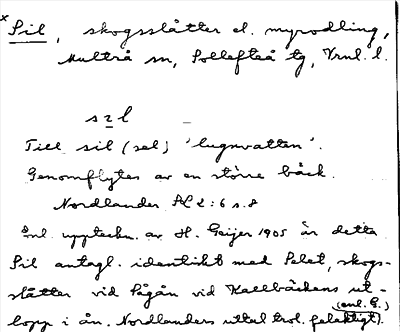 x Sil, skogsslåtter el. myrodling,
Multrå sn, Sollefteå tg, Vrnl. l.
s z l
Till sil (sel) 'lugnvatten'.
Genomflytes av en större bäck.
Nordlander NL 2:6 s. 8
Enl. uppteckn. av H. Geijer 1905 är detta
Sil antagl. identiskt med Selet, skogs-
slåtter vid Sågån vid Kallbäckens ut-
lopp i ån. Nordlanders uttal trol. felaktigt (enl. G.).